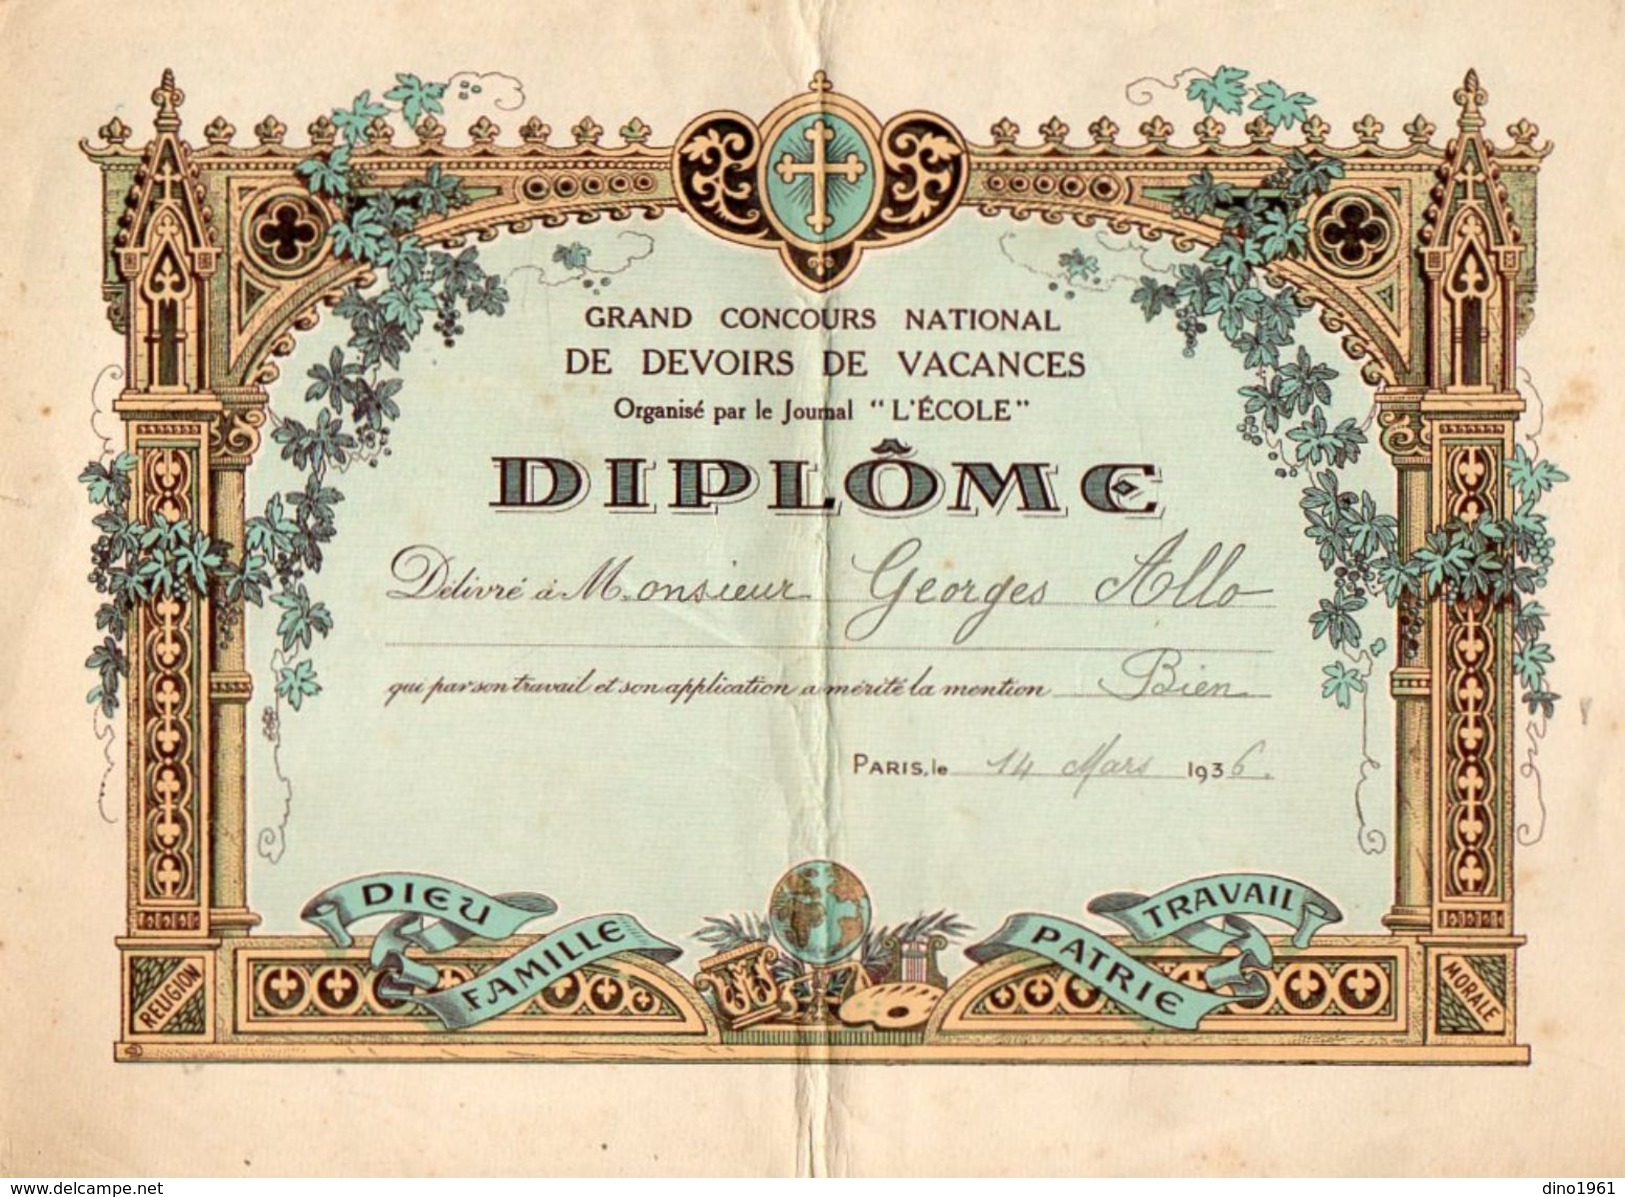 GRAND CONCOURS NATIONAL
DE DEVOIRS DE VACANCES
Organisé par le Journal "L'ÉCOLE"
DIPLÔME
Délivré à Monsieur Georges Allo
qui par son travail et son application a mérité la mention Bien
PARIS, le 14 Mars 1936.
DIEU
FAMILLE
TRAVAIL
PATRIE
RELIGION
MORALE
www.delcampe.net
dino1961